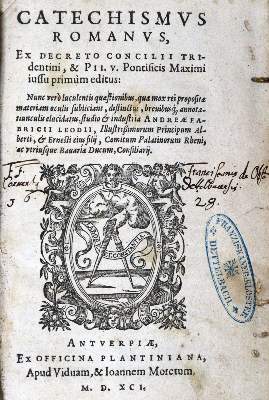 CATECHISMVS
ROMANVS,
EX DECRETO CONCILII TRI-
dentini, & PII. V. Pontificis Maximi
iussu primùm editus:
Nunc verò luculentis quæstionibus, quæ mox rei propositæ
materiam oculis subijciant, distinctus, breuibusq́; annota-
tiunculis elucidatus, studio & industria ANDREÆ FA-
BRICII LEODII, Illustrissimorum Principum Al-
berti, & Ernesti eius filij, Comitum Palatinorum Rheni,
ac vtriusque Bauariæ Ducum, Consiliarij.
28.
FRANZISKANER KLOSTER
DETTELBACH
ANTVERPIÆ,
EX OFFICINA PLANTINIANA,
Apud Viduam, & Ioannem Moretum.
M. D. XCI.